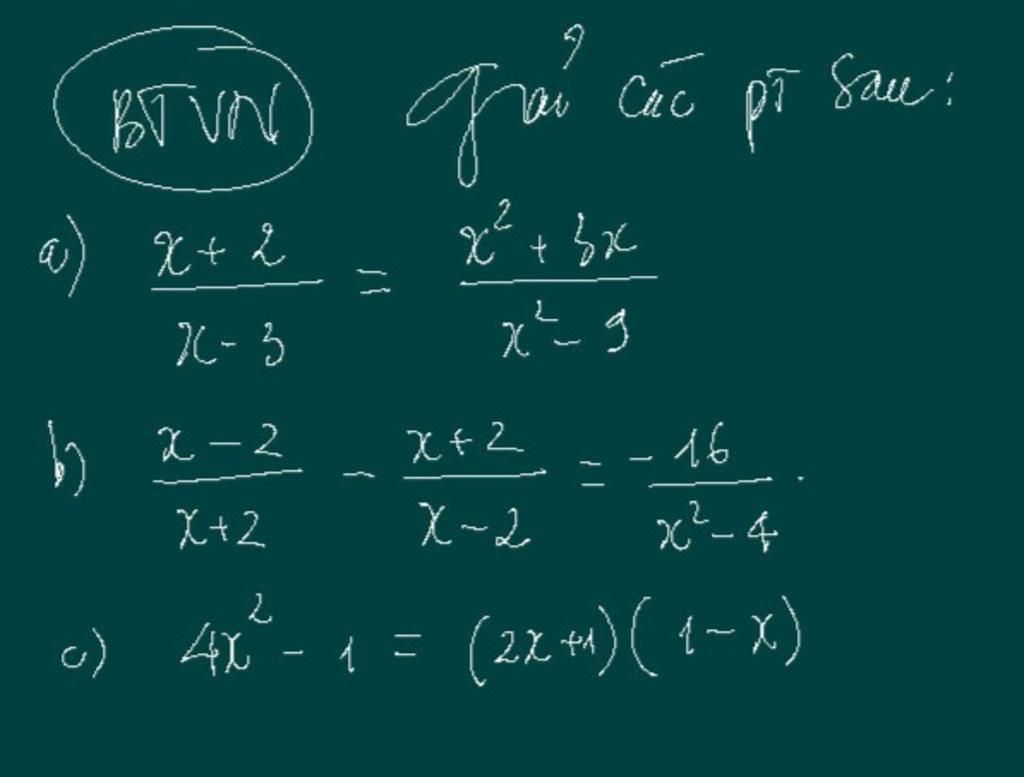 BTVN Giải các pt sau:
a) \frac{x+2}{x-3} = \frac{x^2+3x}{x^2-9}
b) \frac{x-2}{x+2} - \frac{x+2}{x-2} = \frac{-16}{x^2-4}.
c) 4x^2 - 1 = (2x+1)(1-x)